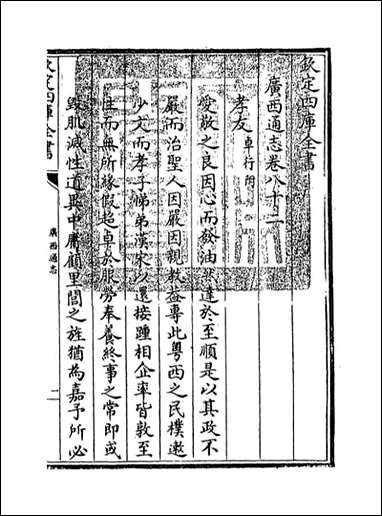 欽定四庫全書
廣西通志卷八十二
孝友 卓行附
愛敬之良因心而發油然達於至順是以其政不
嚴而治聖人因嚴因親教益專此粤西之民樸遬
少文而孝子悌弟漢宋以還接踵相企率皆敦至
性而無所緣假超卓於服勞奉養終事之常即或
毁肌滅性道異中庸顧里閭之旌猶為嘉予所必
欽定四庫全書
廣西通志